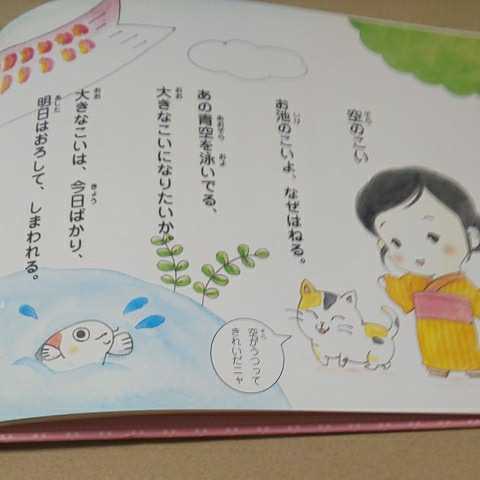 空のこい
お池のこいよ、なぜはねる。
あの青空を泳いでる、
大きなこいになりたいか。
大きなこいは、今日ばかり、
明日はおろして、しまわれる。
空がうつって
きれいだニャ